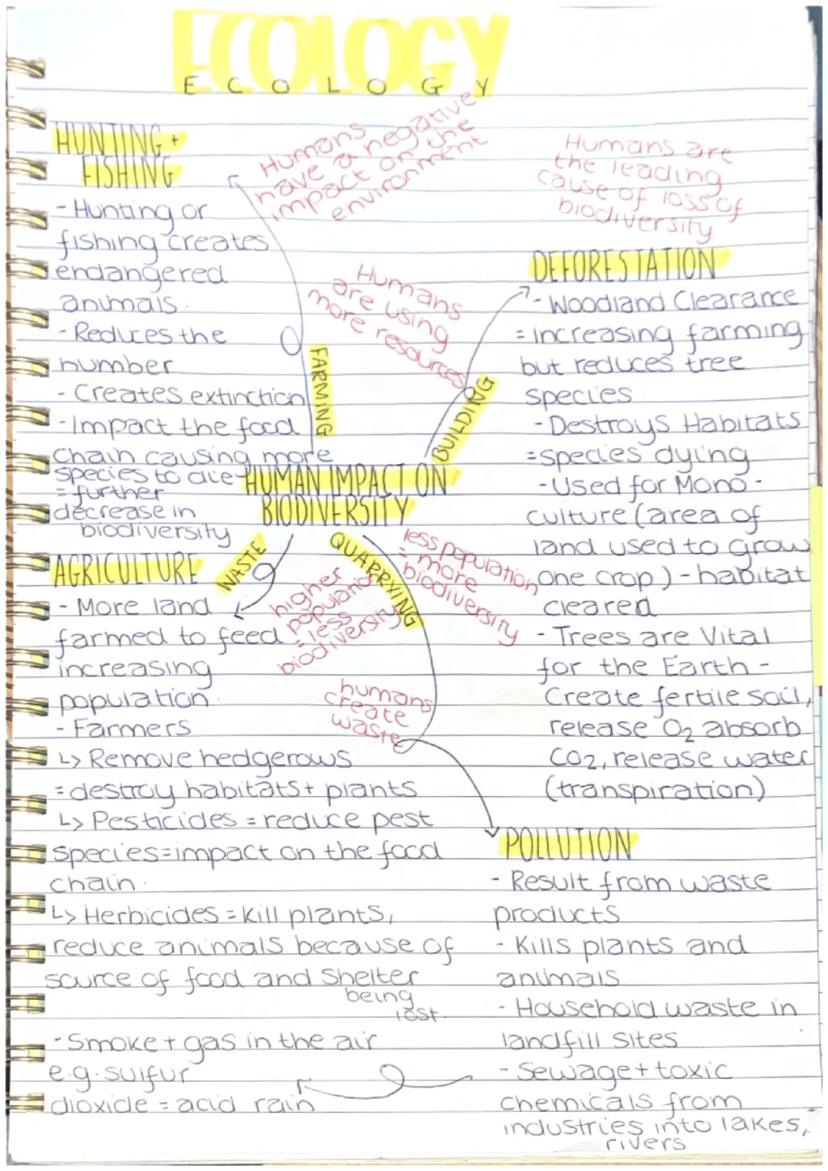 ECOLOGY
ECOLOGY
HUNTING +
FISHING
- Hunting or
fishing creates
endangered
animals.
- Reduces the
number
- Creates extinction
- Impact the food
chain causing more
species to die
= further
decrease in
biodiversity
Humans
have a negative
impact on the
environment
Humans are
the leading
cause of loss of
biodiversity
Humans
are using
more resources
FARMING
BUILDING
HUMAN IMPACT ON
BIODIVERSITY
WASTE
QUARRYING
less population
= more
biodiversity
higher
population
= less
biodiversity
humans
create
waste
DEFORESTATION
- Woodland Clearance
= increasing farming
but reduces tree
species
- Destroys Habitats
= species dying
- Used for Mono-
culture (area of
land used to grow
one crop) - habitat
cleared
- Trees are Vital
for the Earth -
Create fertile soil,
release O₂ absorb
CO₂, release water
(transpiration)
AGRICULTURE
- More land
farmed to feed
increasing
population.
- Farmers
↳ Remove hedgerows
= destroy habitats + plants
↳ Pesticides = reduce pest
species = impact on the food
chain.
↳ Herbicides = Kill plants,
reduce animals because of
source of food and Shelter
being
lost.
POLLUTION
- Result from waste
products
- Kills plants and
animals
- Household waste in
landfill sites
- Sewage + toxic
chemicals from
industries into lakes,
rivers
- Smoke + gas in the air
e.g. sulfur
dioxide = acid rain